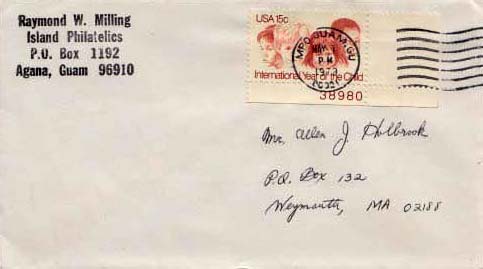 Raymond W. Milling
Island Philatelics
P.O. Box 1192
Agana, Guam 96910
USA 15c
MPO, GUAM, GU
PM
1979
International Year of the Child
38980
Mr. Allen J Holbrook
P.O. Box 132
Weymouth, MA 02188